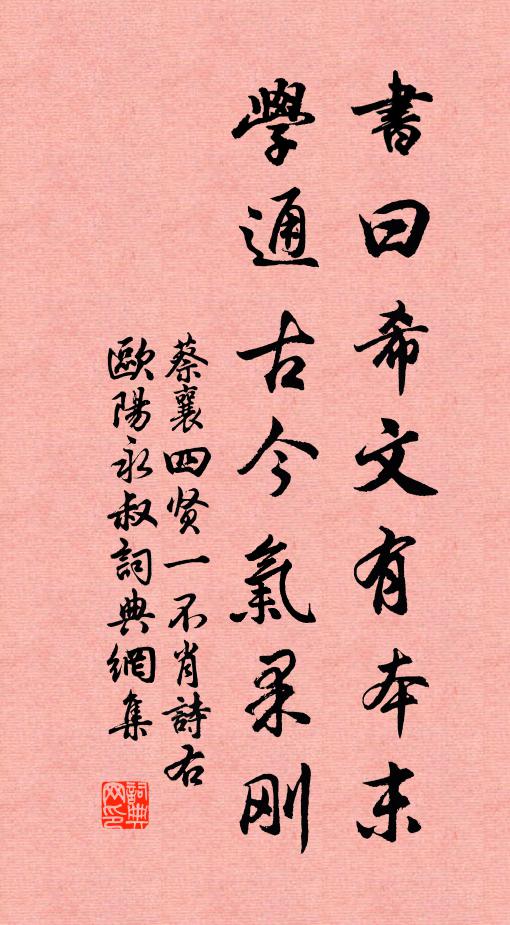 書曰希文有本末
學通古今氣果刚
蔡襄四贤一不肖詩右
歐陽永叔詞典網集
詞典
网印